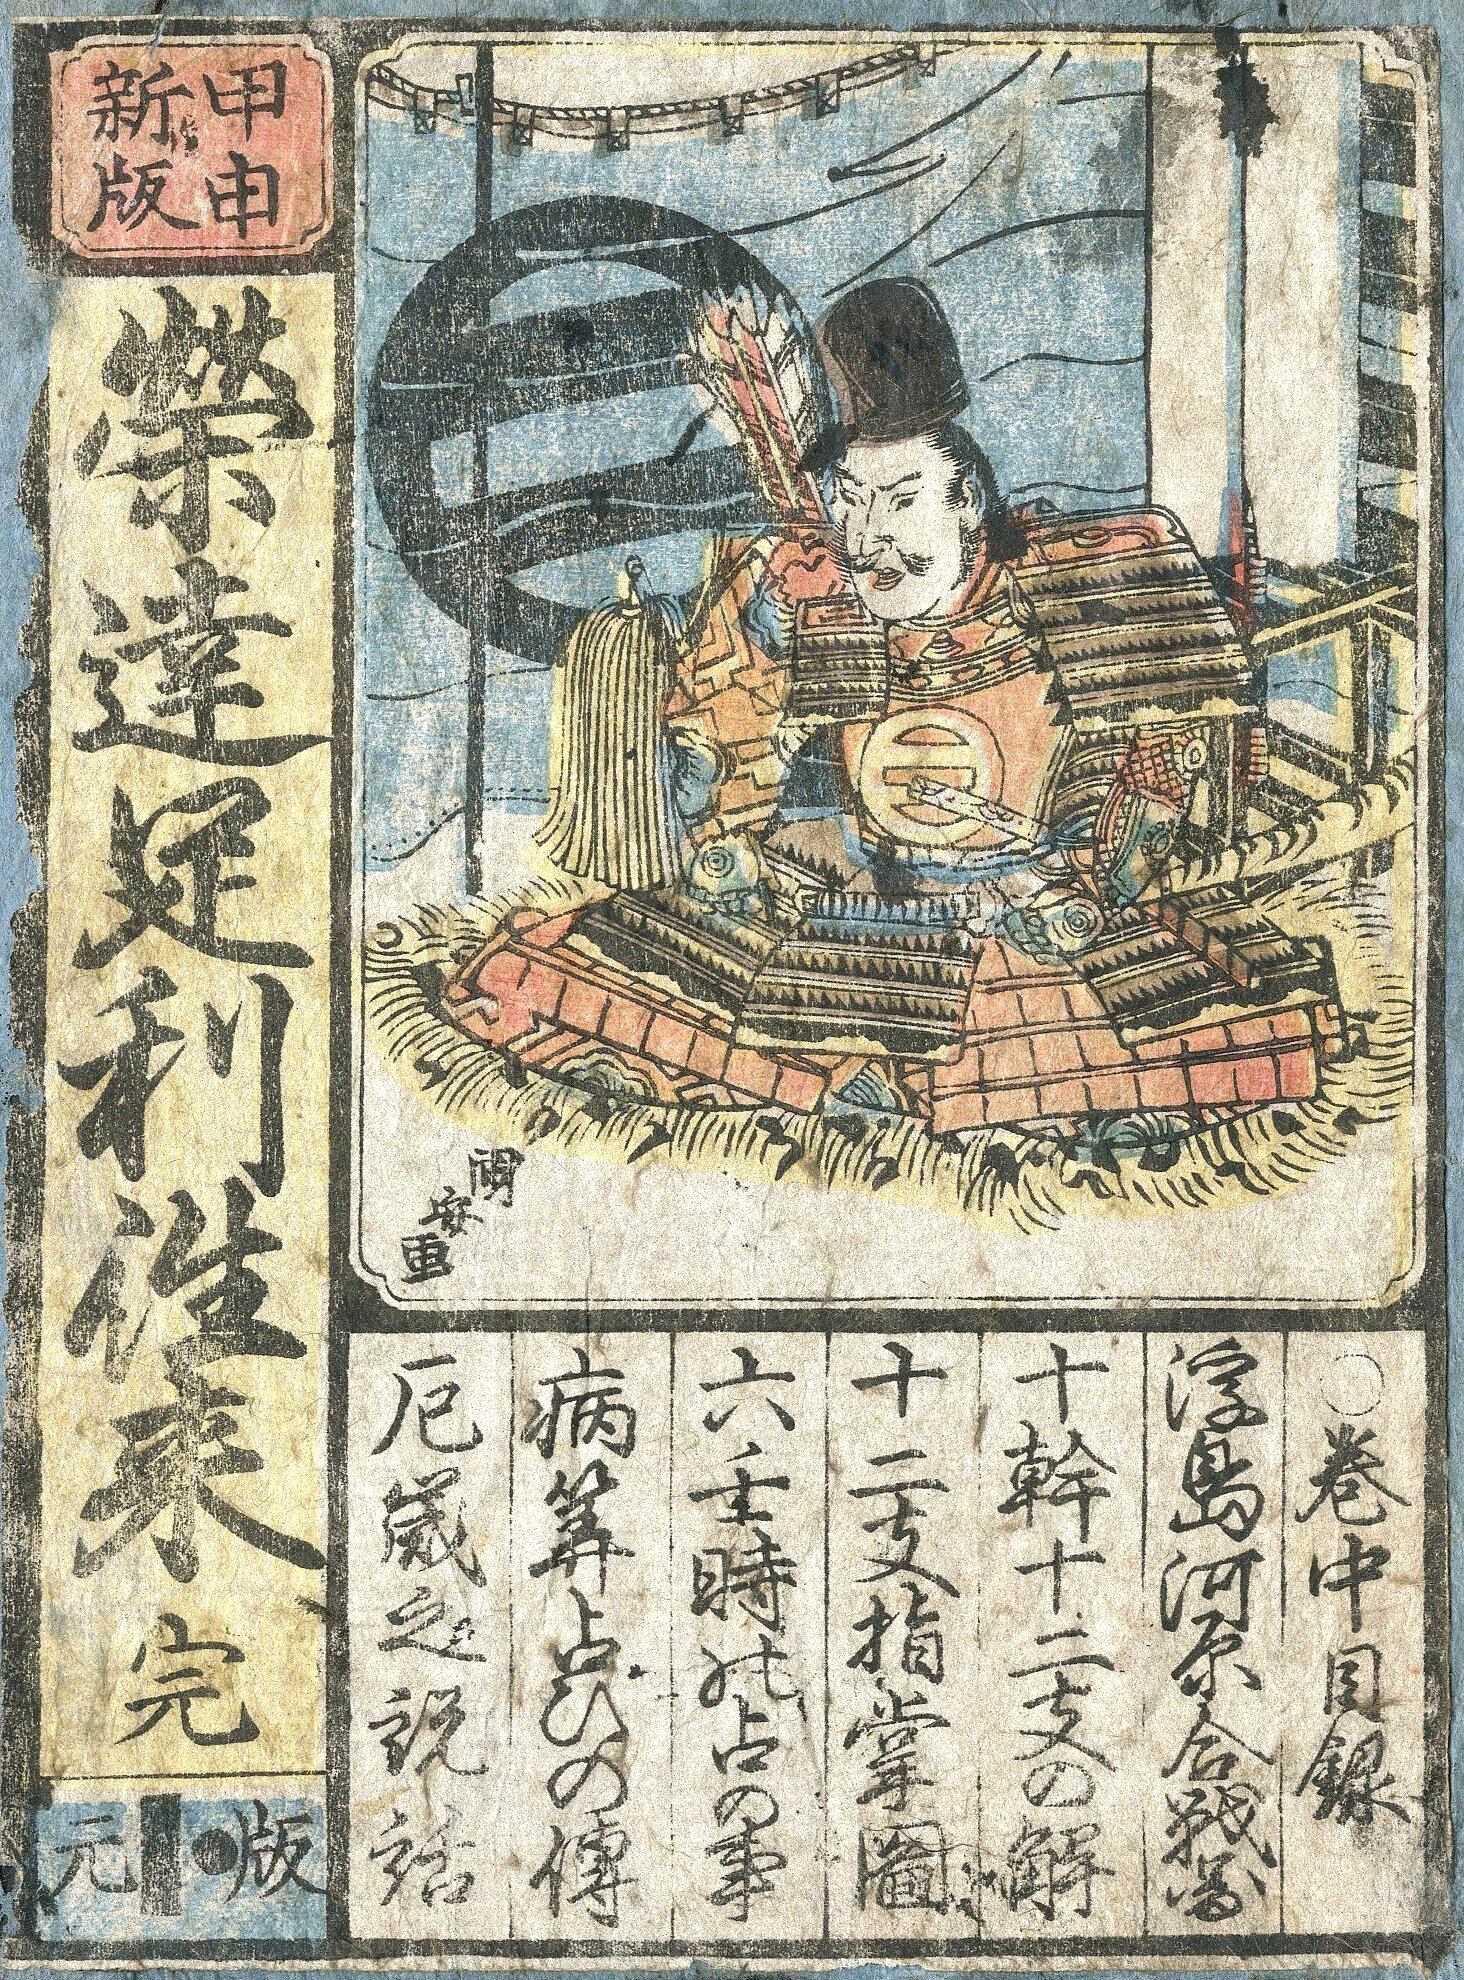 甲申
新版
榮達足利往来 完
版
元
國安画
○巻中目録
浮島河原合戦図
十幹十二支の解
十二支指掌圖
六壬時の占の事
病筭占ひの傳
厄歳之説話